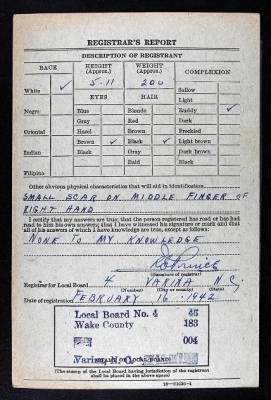 REGISTRAR'S REPORT
DESCRIPTION OF REGISTRANT
RACE
HEIGHT (Approx.)
WEIGHT (Approx.)
COMPLEXION
White ✓
5-11
200
Sallow
Light
EYES
HAIR
Ruddy ✓
Negro
Blue
Blonde
Dark
Gray
Red
Freckled
Oriental
Hazel
Brown
Light brown
Brown ✓
Black ✓
Dark brown
Indian
Black
Gray
Black
Bald
Filipino
Other obvious physical characteristics that will aid in identification
SMALL SCAR ON MIDDLE FINGER OF
RIGHT HAND
I certify that my answers are true; that the person registered has read or has had
read to him his own answers; that I have witnessed his signature or mark and that
all of his answers of which I have knowledge are true, except as follows:
NONE TO MY KNOWLEDGE
(Signature of registrar)
Registrar for Local Board 4 VARINA N.C.
(Number) (City or county) (State)
Date of registration FEBRUARY 16 - 1942
Local Board No. 4 45
Wake County 183
004
Varina, N. C.
(STAMP OF LOCAL BOARD)
(The stamp of the Local Board having jurisdiction of the registrant
shall be placed in the above space)